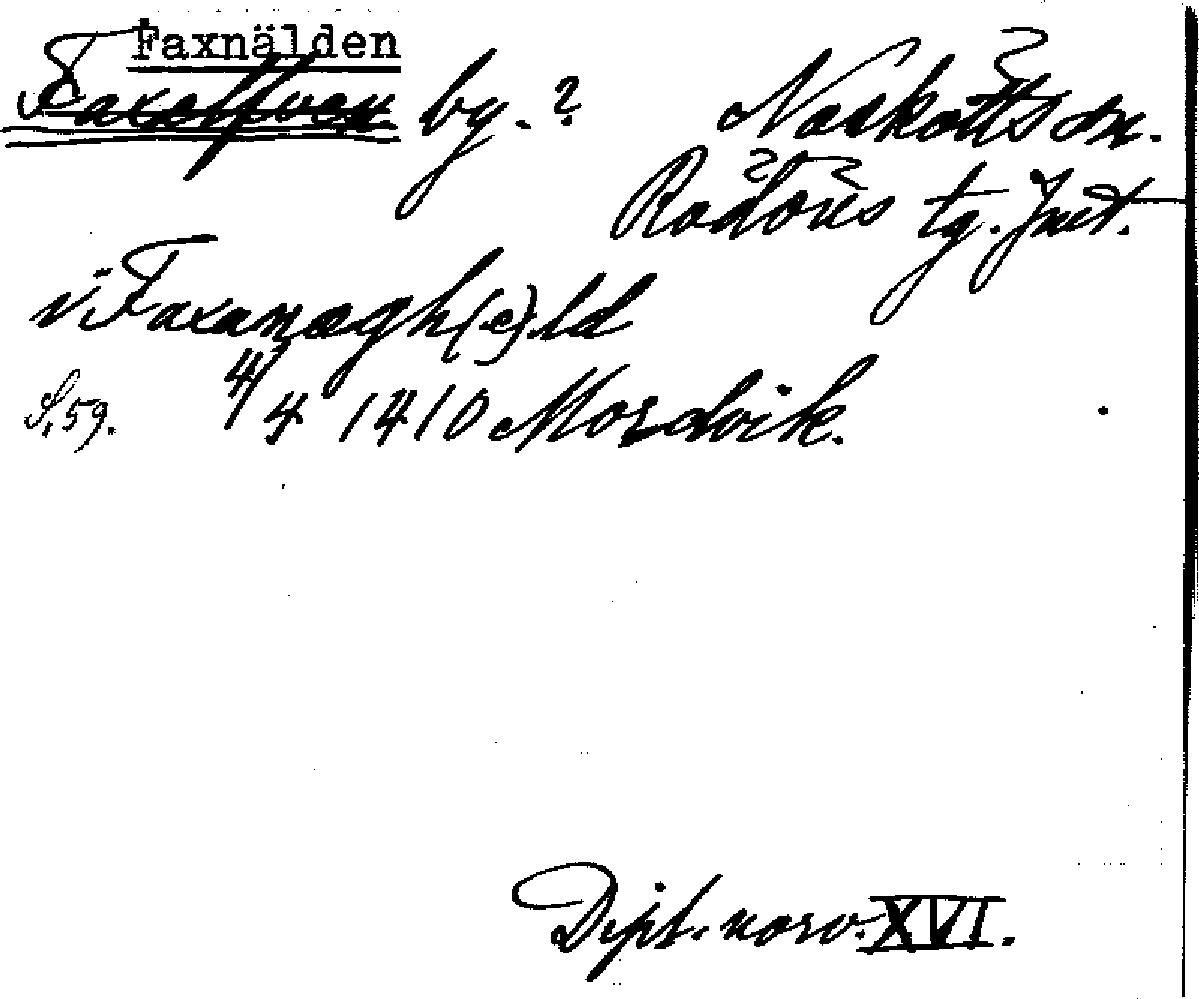 Faxnälden
Faxelfven by. ? Näskotts sn.
Rödöns tg. Jmt.
i Faxanægh(e)ld
S. 59. 4/4 1410 Mordvik.
Dipl. norv. XVI.